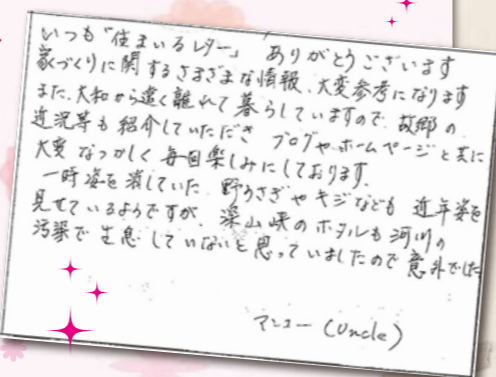 いつも「住まいるレター」 ありがとうございます
家づくりに関するさまざまな情報、大変参考になります
また、大和から遠く離れて暮らしていますので、故郷の
近況等も紹介していただき ブログやホームページと共に
大変 なつかしく 毎回楽しみにしております。
一時姿を消していた 野うさぎやキジなども 近年姿を
見せているようですが、深山峡のホタルも河川の
汚染で生息していないと思っていましたので意外でした
(Uncle)